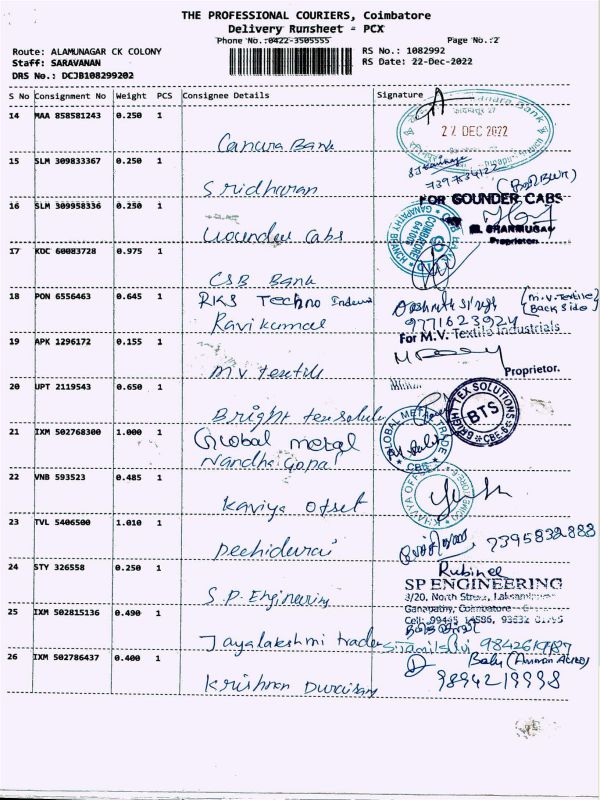 THE PROFESSIONAL COURIERS, Coimbatore
Delivery Runsheet - PCX
Phone No.:0422-3505555
Page No.:2
Route: ALAMUNAGAR CK COLONY
Staff: SARAVANAN
DRS No.: DCJB108299202
RS No.: 1082992
RS Date: 22-Dec-2022
S No Consignment No Weight PCS Consignee Details Signature
14 MAA 858581243 0.250 1 Canara Bank
22 DEC 2022
15 SLM 309833367 0.250 1 Sridharan
(Bell BWR)
16 SLM 309958336 0.250 1 Gounder Cabs
FOR GOUNDER CABS
Proprietor.
GANAPATHY BRANCH COIMBATORE
17 KDC 60083728 0.975 1 CSB Bank
18 PON 6556463 0.645 1 RKS Techno
Ravikumar
9771623924
(M.V. Textile)
(Back Side)
19 APK 1296172 0.155 1 M.V Textils
For M.V. Textile Industrials
Proprietor.
20 UPT 2119543 0.650 1 Bright tex
BRIGHT TEX SOLUTIONS
BTS
CBE-6
21 IXM 502768300 1.000 1 Global metal
Nandha Gopal
GLOBAL METAL TRADE
CBE
22 VNB 593523 0.485 1 Kaviya Ofset
23 TVL 5406500 1.010 1 Pechidurai
7395832888
24 STY 326558 0.250 1 S.P. Engineering
Rubinee
SP ENGINEERING
3/20, North Street,
Ganapathy, Coimbatore
25 IXM 502815136 0.490 1 Jayalakshmi traders
26 IXM 502786437 0.400 1 Krishnan Duraisamy
9894219998